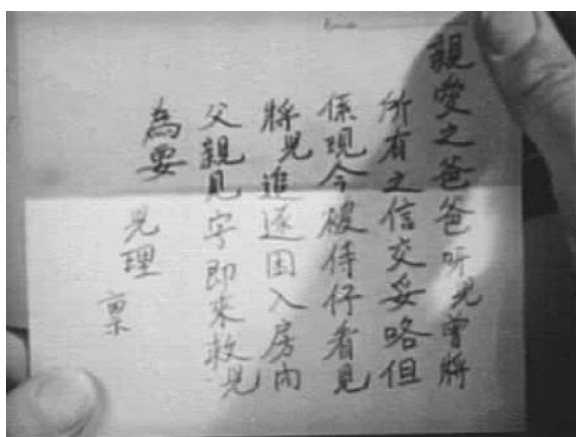 親愛之爸爸听兒曾將
所有之信交妥略但
係現今被侍仔看見
將兒追逐困入房內
父親見字即來救兒
為要
兒理
稟